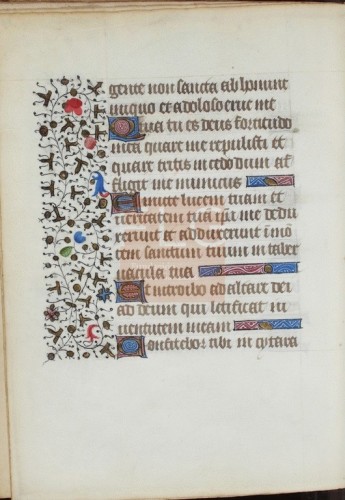 gente non sancta ab homine
iniquo et doloso erue me
Quia tu es deus fortitudo
mea quare me repulisti et
quare tristis incedo dum af
fligit me inimicus
Emitte lucem tuam et
veritatem tuam ipsa me dedu
xerunt et adduxerunt in mon
tem sanctum tuum in taber
nacula tua
Et introibo ad altare dei
ad deum qui letificat iu
ventutem meam
Confitebor tibi in cithara